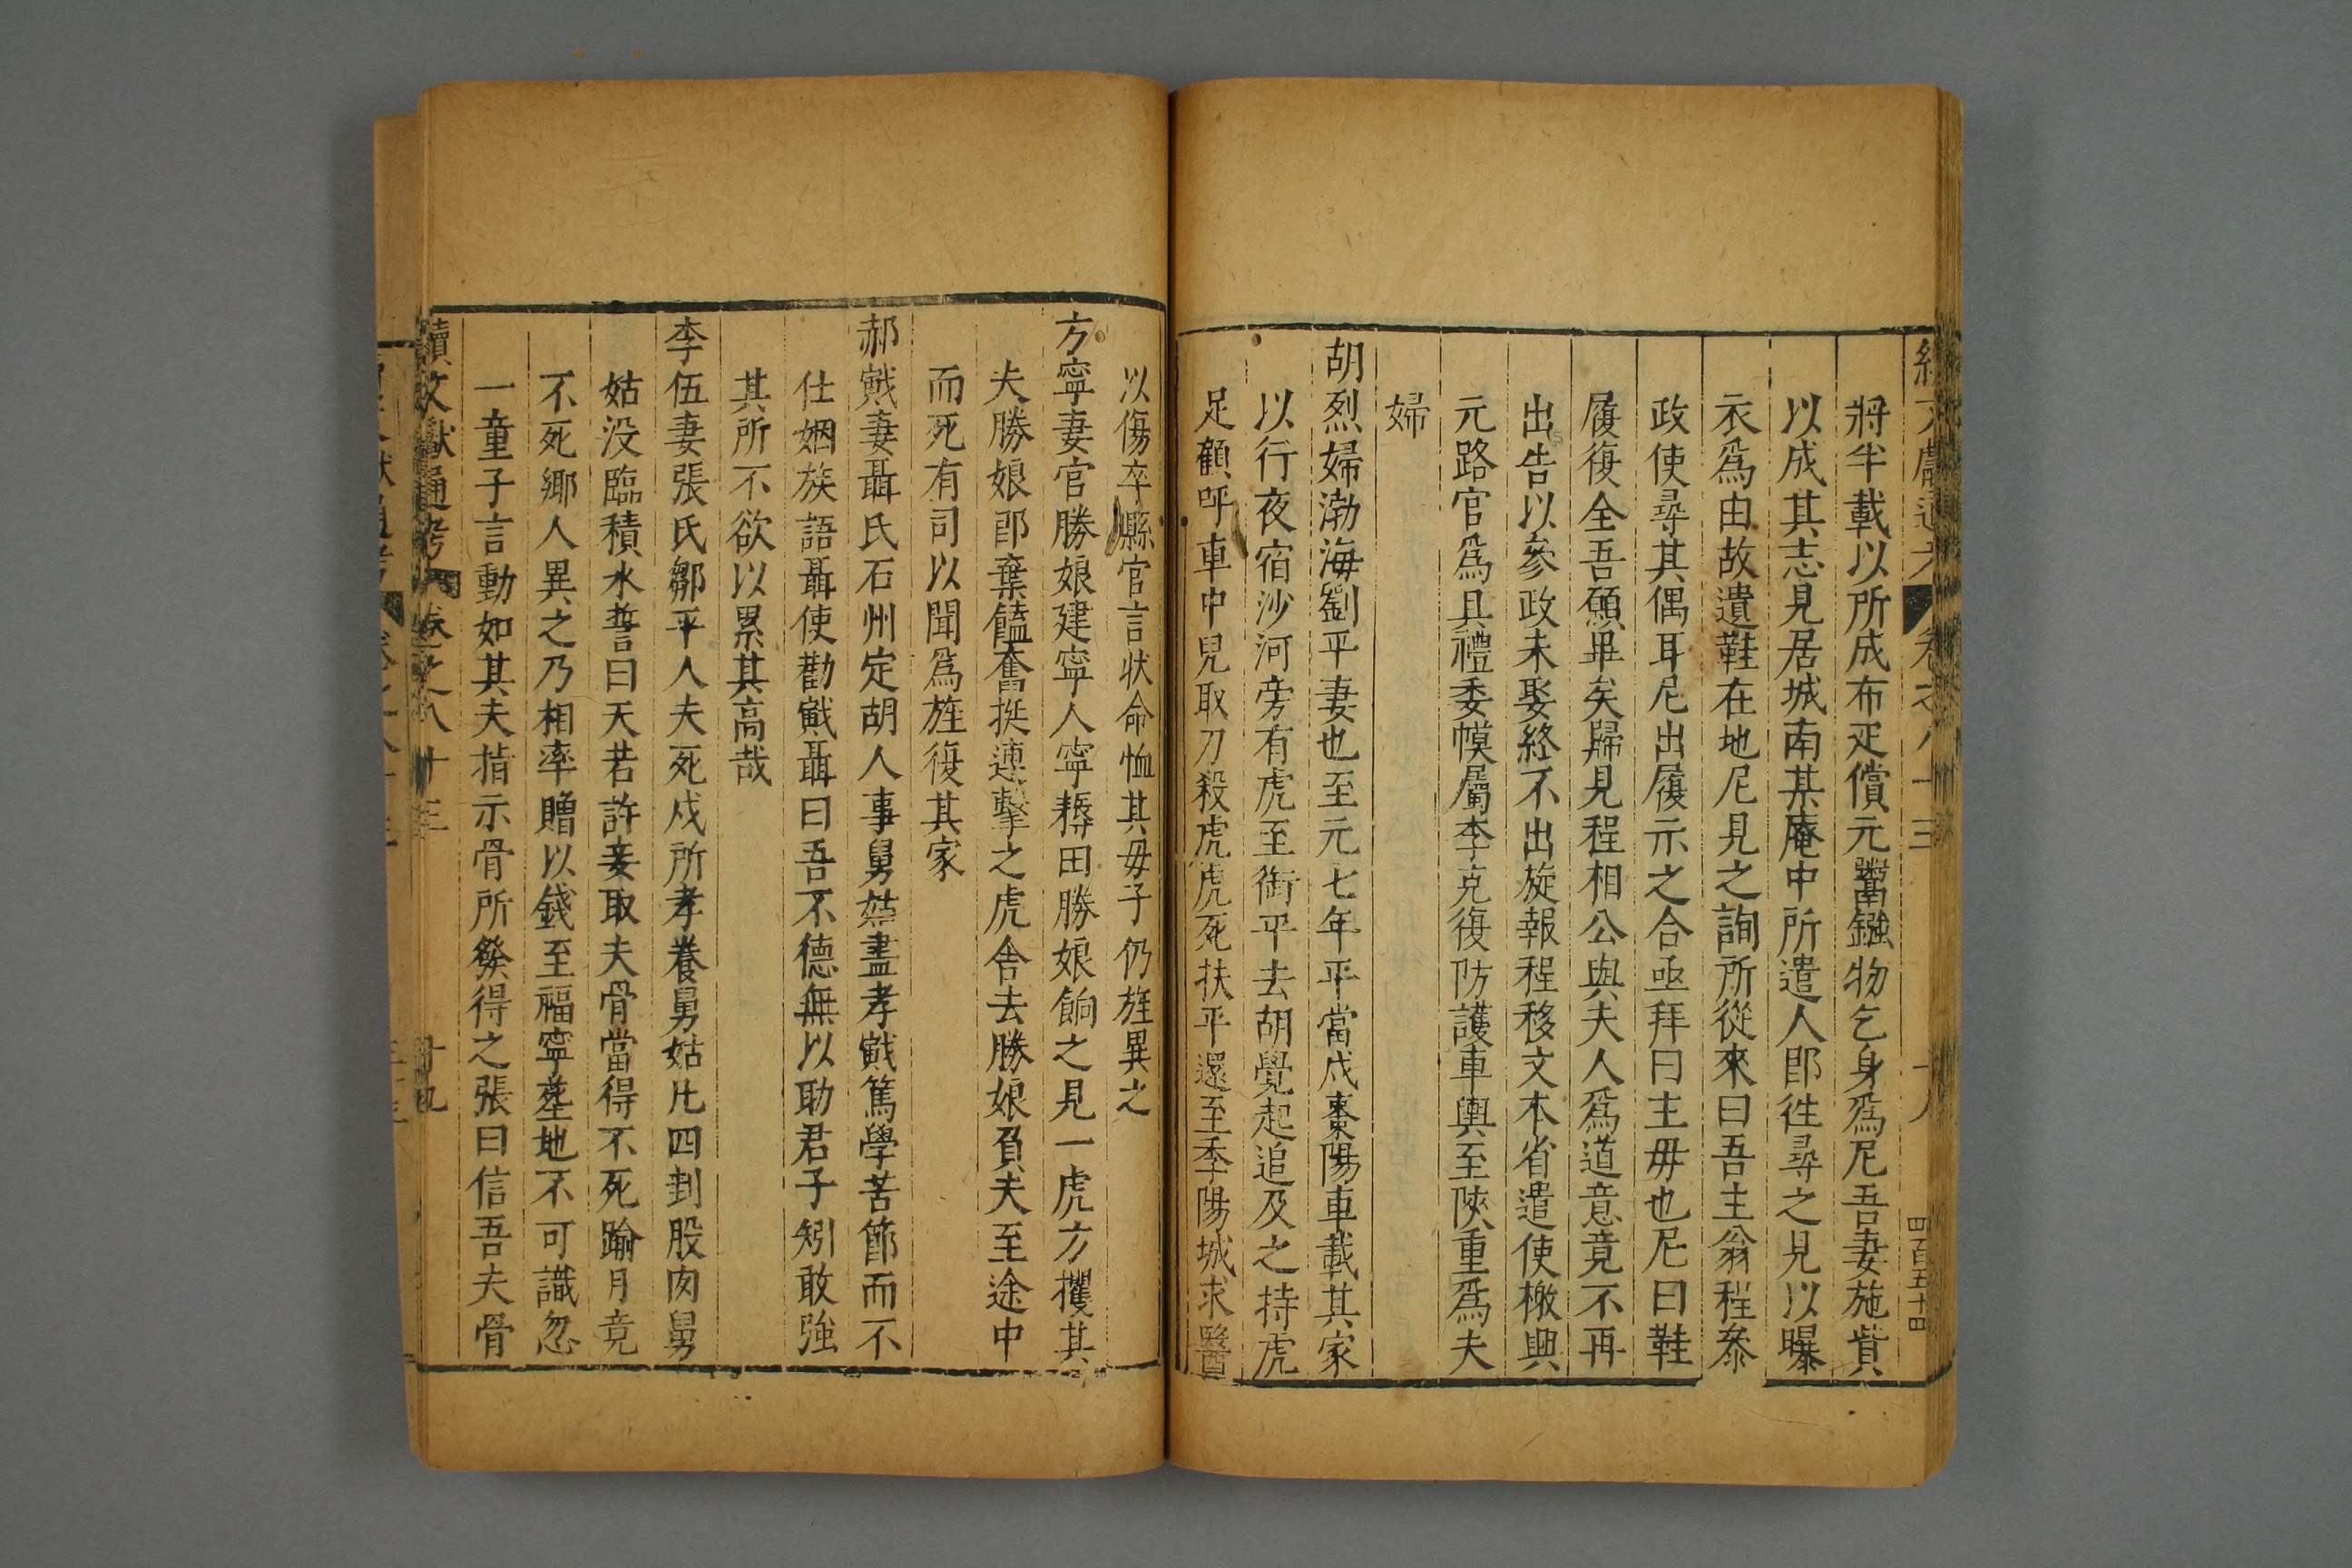 將半載以所成布疋償元鬻鏹物乞身爲尼吾妻施貲
以成其志見居城南某庵中所遣人即往尋之見以曝
衣爲由故遺鞋在地尼見之詢所從來曰吾主翁程參
政使尋其偶耳尼出履示之合亟拜曰主毋也尼曰鞋
履復全吾願畢矣歸見程相公與夫人爲道意竟不再
出告以參政未娶終不出旋報程移文本省遣使檄興
元路官爲具禮委幙屬李克復防護車輿至陝重爲夫
婦
胡烈婦渤海劉平妻也至元七年平當戍棗陽車載其家
以行夜宿沙河旁有虎至銜平去胡覺起追及之持虎
足顧呼車中兒取刀殺虎虎死扶平還至季陽城求醫
以傷卒縣官言状命恤其毋子仍旌異之
方寧妻官勝娘建寧人寧耨田勝娘餉之見一虎方攫其
夫勝娘即棄饁奮挺連擊之虎舍去勝娘負夫至途中
而死有司以聞爲旌復其家
郝戭妻聶氏石州定胡人事舅姑盡孝戭篤學苦節而不
仕姻族語聶使勸戭聶曰吾不德無以助君子矧敢強
其所不欲以累其高哉
李伍妻張氏鄒平人夫死戍所孝養舅姑凡四刲股肉舅
姑没臨積水誓曰天若許妾取夫骨當得不死踰月竟
不死鄉人異之乃相率贈以錢至福寧塟地不可識忽
一童子言動如其夫指示骨所發得之張曰信吾夫骨
續文獻通考 卷之八十三 十九